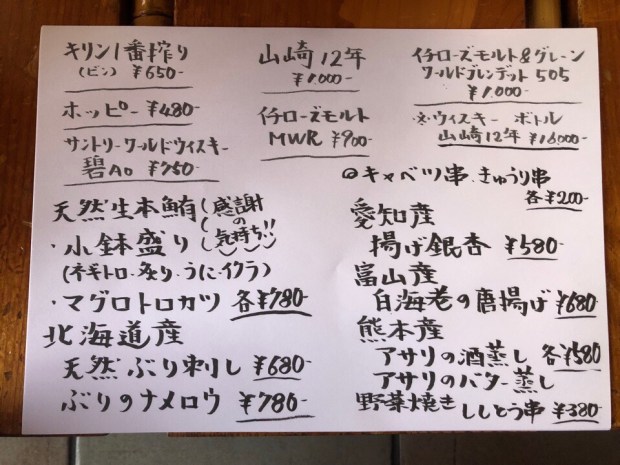 キリン1番搾り
(ビン) ¥650-
ホッピー ¥480-
サントリーワールドウィスキー
碧Ao ¥750-
山崎12年
¥1000-
イチローズモルト
MWR ¥900-
イチローズモルト&グレーン
ワールドブレンデット505
¥1000-
ウィスキー ボトル
山崎12年 ¥16000-
◎キャベツ串.きゅうり串
各¥200-
天然生本鮪(感謝の気持ち!!)
・小鉢盛り
(ネギトロ・炙り・うに・イクラ)
・マグロトロカツ 各¥780-
北海道産
天然ぶり刺し ¥680-
ぶりのナメロウ ¥780-
愛知産
揚げ銀杏 ¥580-
富山産
白海老の唐揚げ ¥680-
熊本産
アサリの酒蒸し 各¥580
アサリのバター蒸し
野菜焼き ししとう串 ¥380-